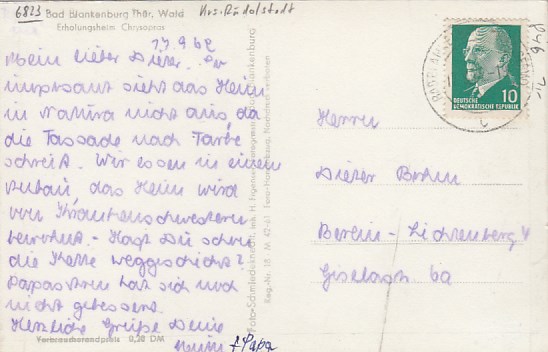 6823 Bad Blankenburg Thür. Wald Krs. Rudolstadt
Erholungsheim Chrysopras
17.9.62
Mein lieber Dieter. So
imposant sieht das Heim
in Natura nicht aus, da
die Fassade nach Farbe
schreit. Wir essen in einem
das Heim wird
von Krankenschwestern
bewohnt. Hast Du schon
die Kette weggeschickt?
Papas hat sich noch
nicht gebessert.
Herzliche Grüße Deine
Mutti + Papa
Verbraucherendpreis 0,20 DM
Foto-Schmiedeknecht, Inh. H.
Reg.-Nr. 18 M 42-61
10
DEUTSCHE
DEMOKRATISCHE REPUBLIK
Herrn
Dieter Bohm
Berlin-Lichtenberg 4
6a